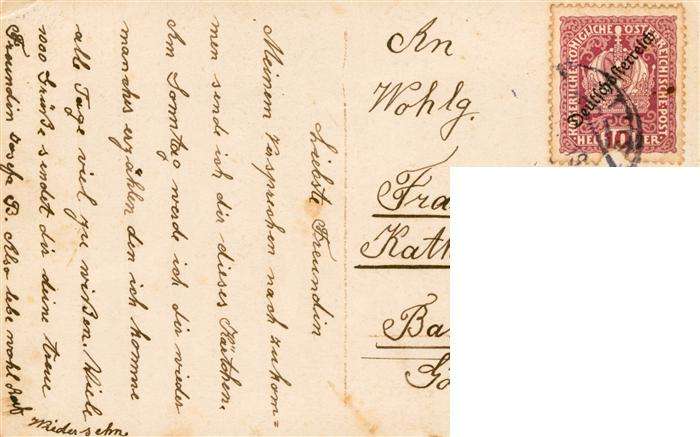 Liebste Freundin
Meinem Versprechen nach zukom=
men sende ich dir dieses Kärtchen.
Am Sonntag werde ich dir wieder
manches erzählen den ich komme
alle Tage viel zu wißen. Viele
1000 Grüße sendet dir deine treue
Freundin Josefa B. Also lebe wohl Auf
Wiedersehn.
An
Wohlg.
Fra
Kath
Ba
Gö
KAISERLICHE KÖNIGLICHE ÖSTERREICHISCHE POST
Deutschösterreich
10
HELLER